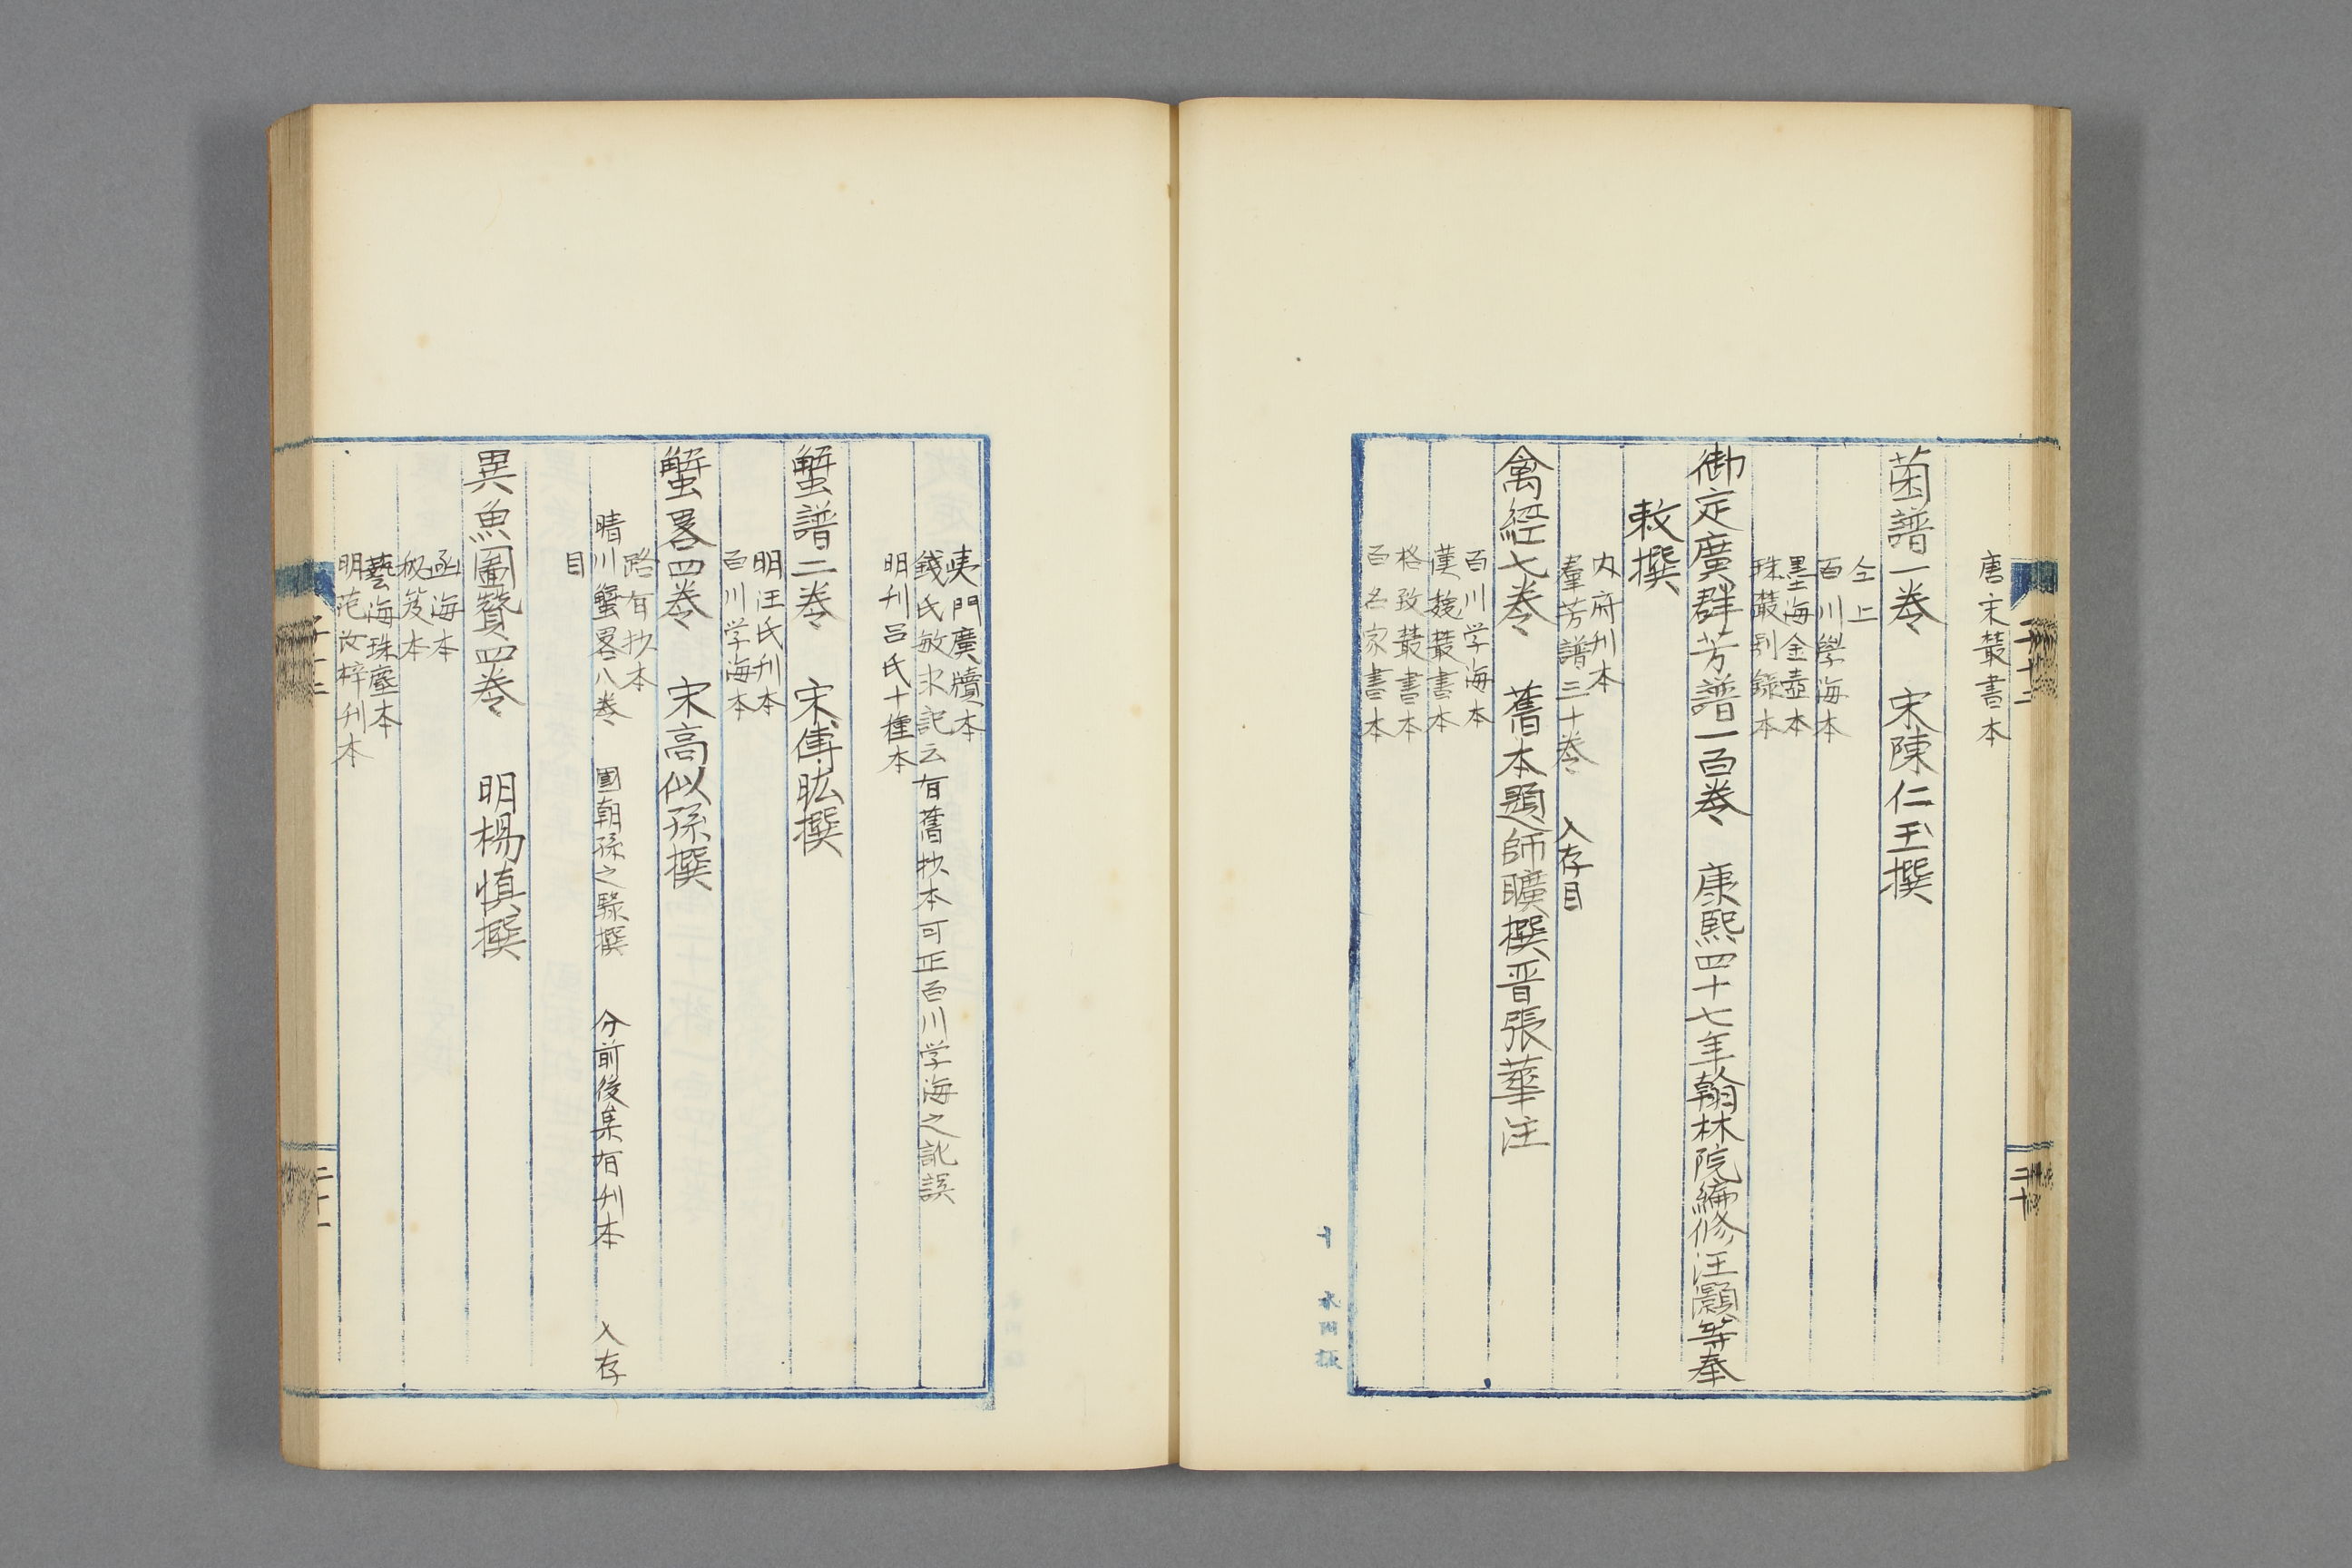 唐宋叢書本
菌譜一卷　宋陳仁玉撰
仝上
百川學海本
墨海金壺本
珠叢別錄本
御定廣群芳譜一百卷　康熙四十七年翰林院編修汪灝等奉
敕撰
内府刋本
羣芳譜三十卷　入存目
禽經七卷　舊本題師曠撰晋張華注
百川学海本
漢魏叢書本
格致叢書本
百名家書本
夷門廣牘本
錢氏敏求記云有舊抄本可正百川学海之訛誤
明刋吕氏十種本
蟹譜二卷　宋傅肱撰
明汪氏刋本
百川学海本
蟹畧四卷　宋高似孫撰
路有抄本
晴川蟹畧八卷　國朝孫之騄撰　分前後集有刋本　入存
目
異魚圖贊四卷　明楊慎撰
函海本
秘笈本
藝海珠塵本
明范汝梓刋本
子十二
二十一
二十